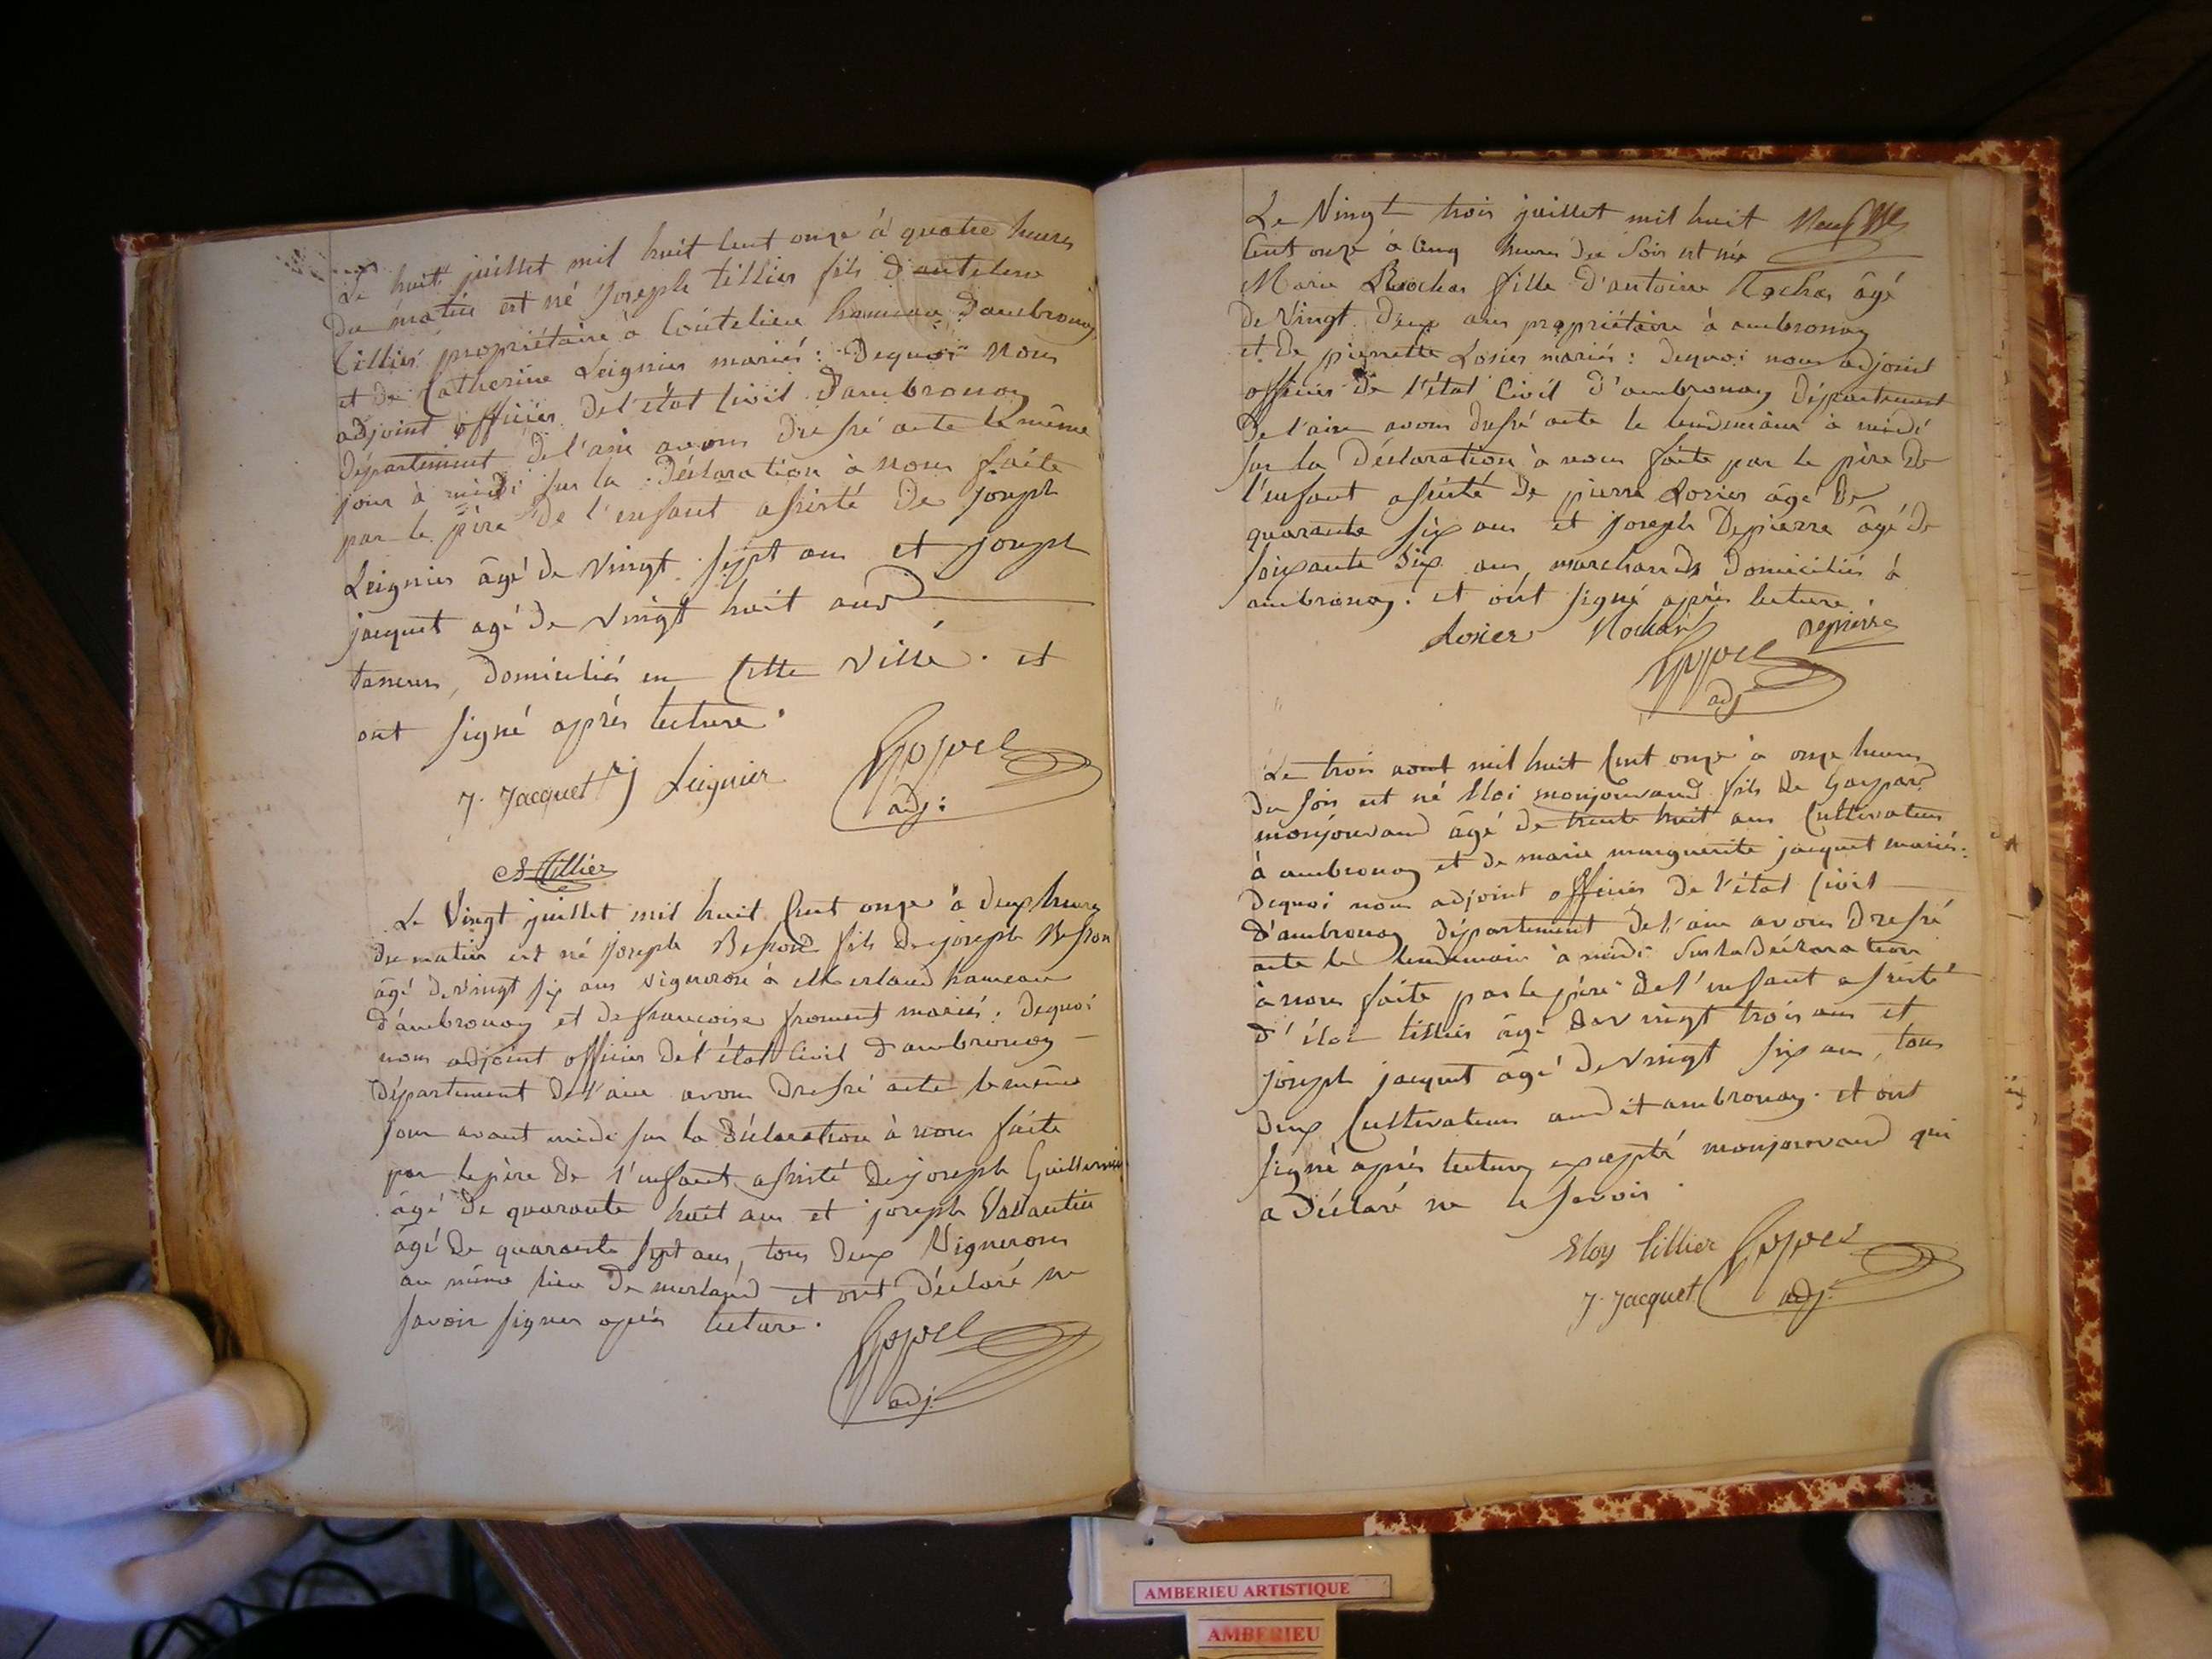 Le huit juillet mil huit cent onze à quatre heures
du matin est né joseph tillier fils d'antelme
tillier propriétaire à Coutelieu hameau d'ambronay
et de Catherine Leignier mariés : Dequoi nous
adjoint officier de l'état civil d'ambronay
Département de l'ain avons dressé acte le même
jour à midi sur la Déclaration à nous faite
par le père de l'enfant assisté de joseph
Leignier âgé de vingt sept ans et joseph
jacquet agé de vingt huit ans
taneurs, domiciliés en cette ville. et
ont signé après lecture.
J. Jacquet J Leignier
adj:
A Tillier
Le Vingt juillet mil huit cent onze à deux heures
du matin est né joseph Besson fils de joseph Besson
âgé de vingt six ans vigneron à Merland hameau
d'ambronay et de francoise froment mariés : Dequoi
nous adjoint officier de l'état civil d'ambronay
Département de l'ain avons dressé acte le même
jour avant midi sur la Déclaration à nous faite
par le père de l'enfant assisté de joseph Guillermin
âgé de quarante huit ans et joseph Vallantin
âgé de quarante sept ans, tous deux Vignerons
au même lieu de merland et ont Déclaré ne
savoir signer après lecture.
adj.
Le Vingt trois juillet mil huit
cent onze à cinq heures du soir est née
Marie Rochas fille d'antoine Rochas âgé
de vingt deux ans propriétaire à ambronay
et de pierrette Losier mariés : Dequoi nous adjoint
officier de l'état civil d'ambronay Département
de l'ain avons dressé acte le lendemain à midi
sur la Déclaration à nous faite par le père de
l'enfant assisté de pierre Losier âgé de
quarante six ans et joseph Depierre âgé de
soixante dix ans marchands domiciliés à
ambronay. et ont signé après lecture.
Losier Rochas Depierre
adj
Le trois aout mil huit cent onze à onze heures
du soir est né Eloi monjouvand fils de Gaspard
monjouvand âgé de trente huit ans Cultivateur
à ambronay et de marie marguerite jacquet mariés :
Dequoi nous adjoint officier de l'état civil
d'ambronay département de l'ain avons dressé
acte le lendemain à midi sur la Déclaration
à nous faite par le père de l'enfant assisté
d'éloi tillier âgé de vingt trois ans et
joseph jacquet âgé de vingt six ans, tous
deux Cultivateurs audit ambronay. et ont
signé après lecture, excepté monjouvand qui
a Déclaré ne le savoir.
Eloy tillier
J. Jacquet adj.
AMBERIEU ARTISTIQUE
AMBERIEU